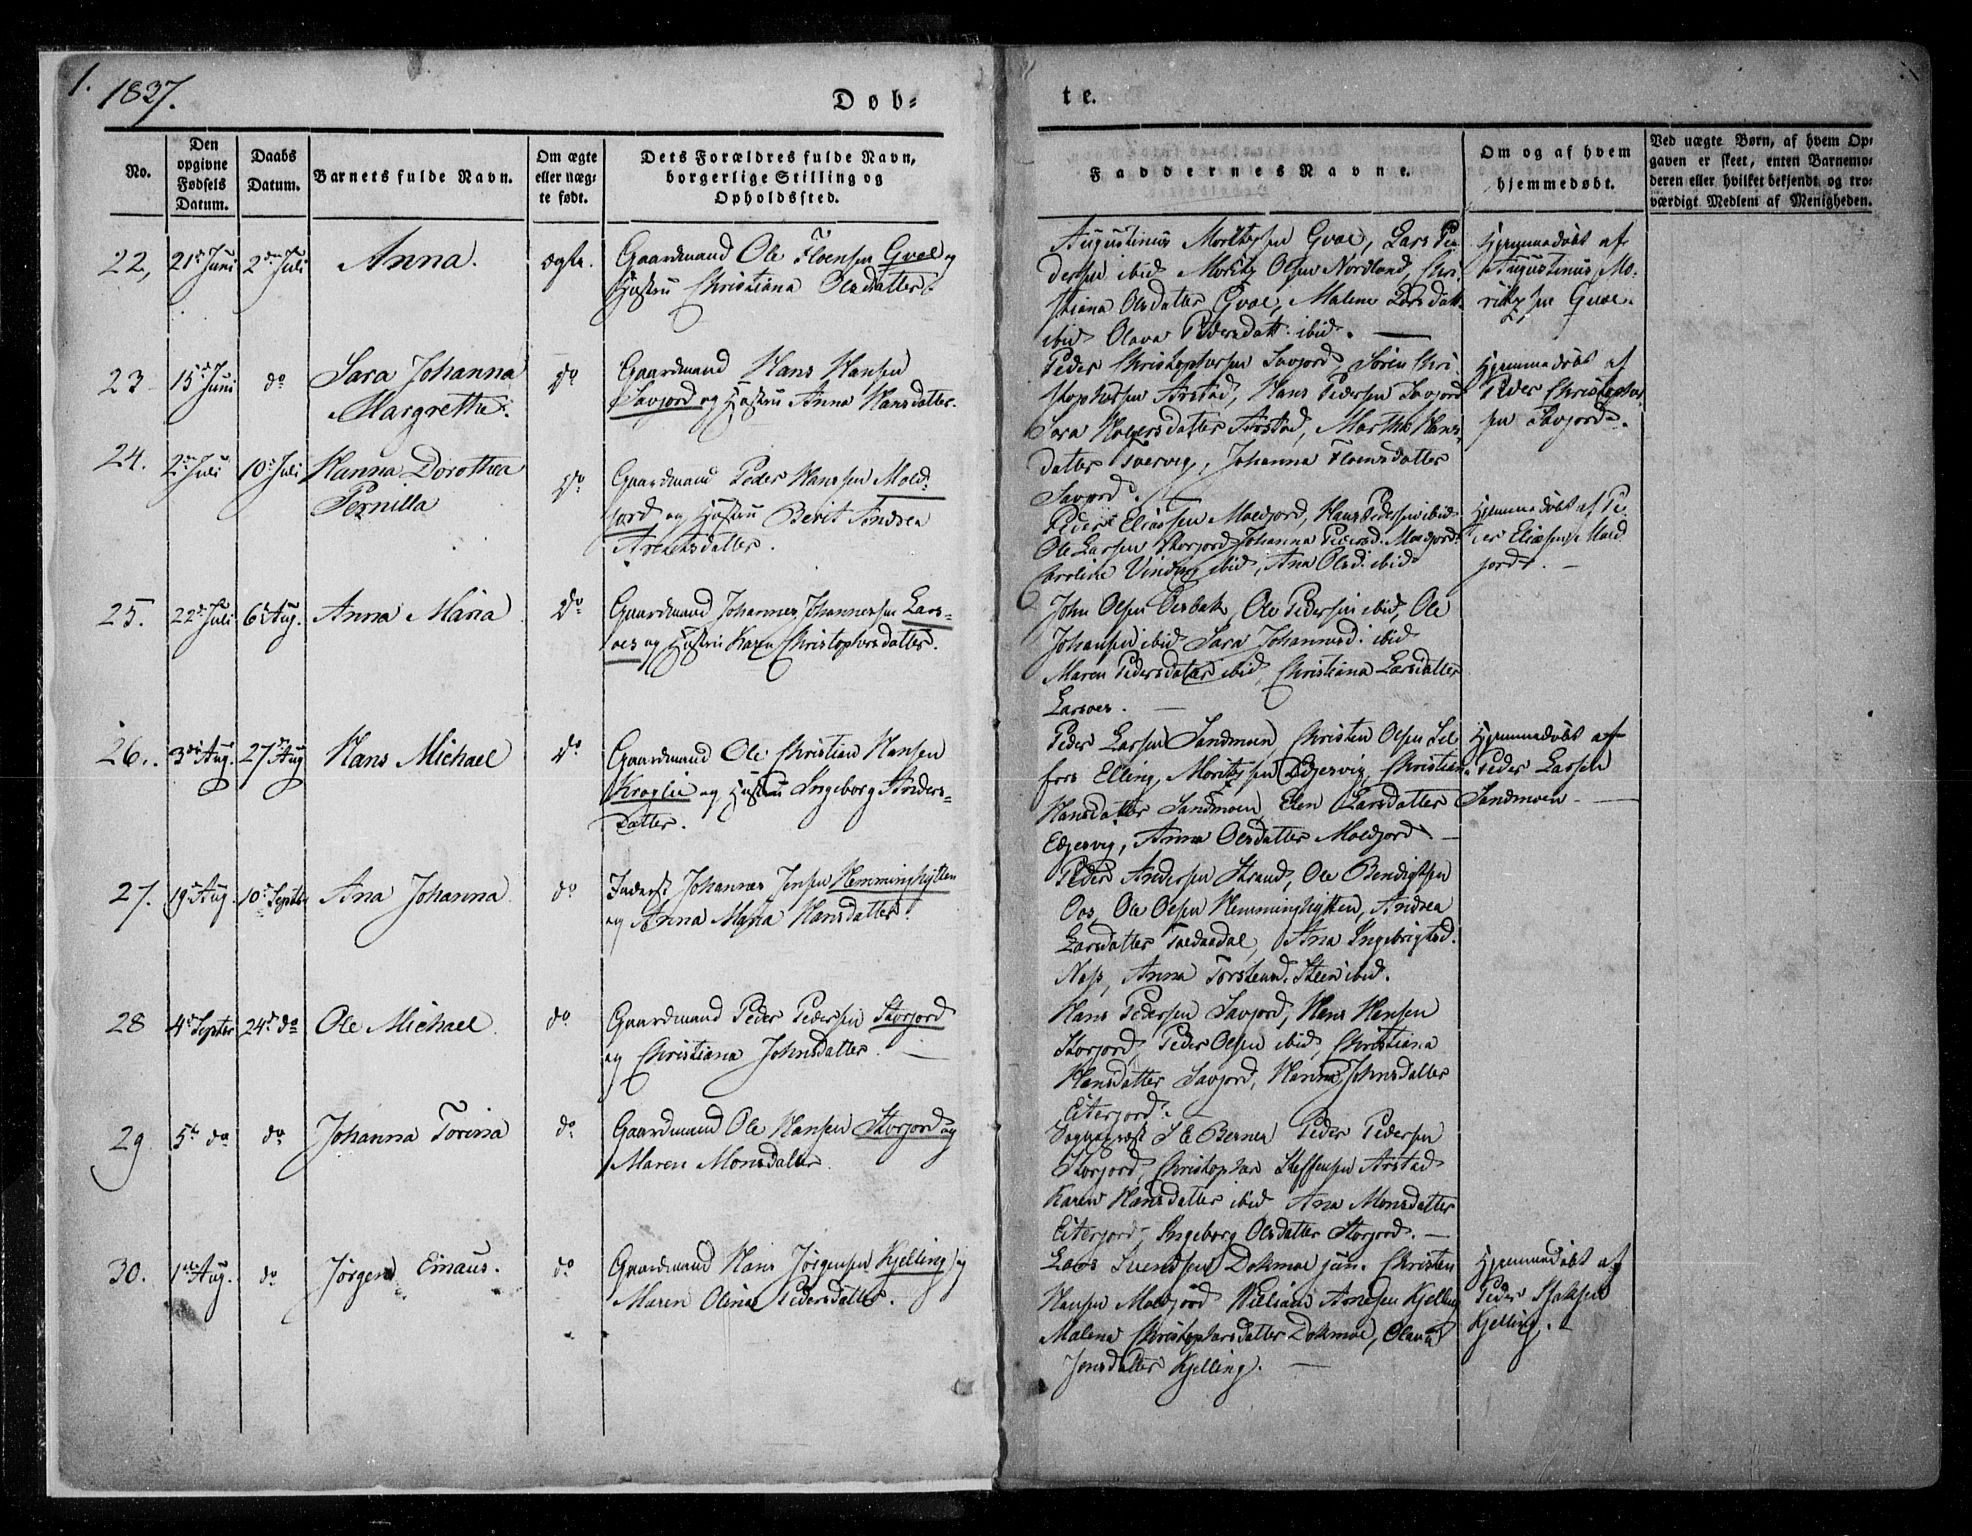 1.
1837.
Døb-
te.
No.
Den opgivne Fødsels Datum.
Daabs Datum.
Barnets fulde Navn.
Om ægte eller uægte født.
Dets Forældres fulde Navn, borgerlige Stilling og Opholdssted.
Faddernes Navne.
Om og af hvem hjemmedøbt.
Ved uægte Børn, af hvem Opgaven er skeet, enten Barnemoderen eller hvilket bekjendt og troværdigt Medlem af Menigheden.
22, 21de Juni 2den Juli Anna. ægte.
Gaardmand Ole Floensen Gvoel og
Hustru Christiana Olsdatter.
Augustinus Moritzsen Gvoe, Lars Pe-
dersen ibid Moritz Olsen Nordland, Chri-
stiana Olsdatter Gvoe, Malene Larsdatt.
ibid Olava Pedersdatt. ibid.
Hjemmedøbt af
Augustinus Mo-
ritzsen Gvoe.
23 15de Juni do Sara Johanna
Margrethe. Do
Gaardmand Hans Hansen
Savjord og Hustru Anna Hansdatter.
Peder Christophersen Savjord, Sören Chri-
stophersen Arstad, Hans Pedersen Savjord
Sara Holgersdatter Arstad, Martha Hans-
datter Tvervig, Johanna Floensdatter
Savjord.
Hjemmedøbt af
Peder Christopher-
sen Savjord.
24. 2den Juli 10de Juli Hanna Dorothea
Pernilla Do
Gaardmand Peder Hanssen Mold-
jord og Hustru Berit Andrea
Arentsdatter.
Peder Eliassen Moldjord, Hans Pedersen ibid
Ole Larsen Storjord Johanna Pedersd. Moldjord
Caroline Vinding ibid, Ana Olsd. ibid
Hjemmedøbt af Pe-
der Eliassen Mold
jord.
25. 22de Juli 6te Aug. Anna Maria Do
Gaardmand Johannes Johannessen Lars-
oes og Hustru Karen Christophersdatter.
John Olsen Oesbak, Ole Pedersen ibid, Ole
Johansen ibid Sara Johannesd. ibid
Maren Pedersdatter ibid, Christiana Larsdatter
Larsoes.
26.. 3die Aug. 27de Aug Hans Michael Do
Gaardmand Ole Christian Hansen
Kroglie og Hustru Ingeborg Anders-
Datter.
Peder Larsen Sandmoen, Christen Olsen Sel
fors Elling, Moritzsen Edjervig, Christian-
Hansdatter Sandmoen, Elen Larsdatter
Edjervig, Anna Olsdatter Moldjord.
Hjemmedøbt af
Peder Larsen
Sandmoen.
27. 19de Aug. 10de Septbr Ana Johanna do
Inderst Johannes Jensen Hemminghytten
og Anna Maria Hansdatter.
Peder Andersen Strand, Ole Bendigtsen
Oos, Ole Olsen Hemminghytten, Andrea
Larsdatter Toldaadal, Ana Ingebrigtsd.
Næss, Anna Torstensd. Steen ibid.
28 4de Septbr 24de do Ole Michael do
Gaardmand Peder Pedersen Storjord
og Christiana Johnsdatter.
Hans Pedersen Savjord, Hans Hansen
Storjord, Peder Olsen ibid, Christiana
Hansdatter Savjord, Hanna Johnsdatter
Eiterjord.
29 5te do do Johanna Torina do
Gaardmand Ole Hansen Storjord og
Maren Monsdatter.
Sognepræst Berner Peder Pedersen
Storjord, Christopher Steffensen Arstad
Karen Hansdatter ibid Ana Monsdatter
Eiterjord, Ingeborg Olsdatter Storjord.
30. 1ste Aug. do Jørgen Emaus. do
Gaardmand Hans Jørgensen Kjelling og
Maren Olina Pedersdatter.
Lars Svendsen Dokmoe jun. Christen
Hansen Moldjord Nielians Arnesen Kjelling
Malena Christophersdatter Dokmoe, Olava
Jensdatter Kjelling.
Hjemmedøbt af
Peder Isaksen
Kjelling.